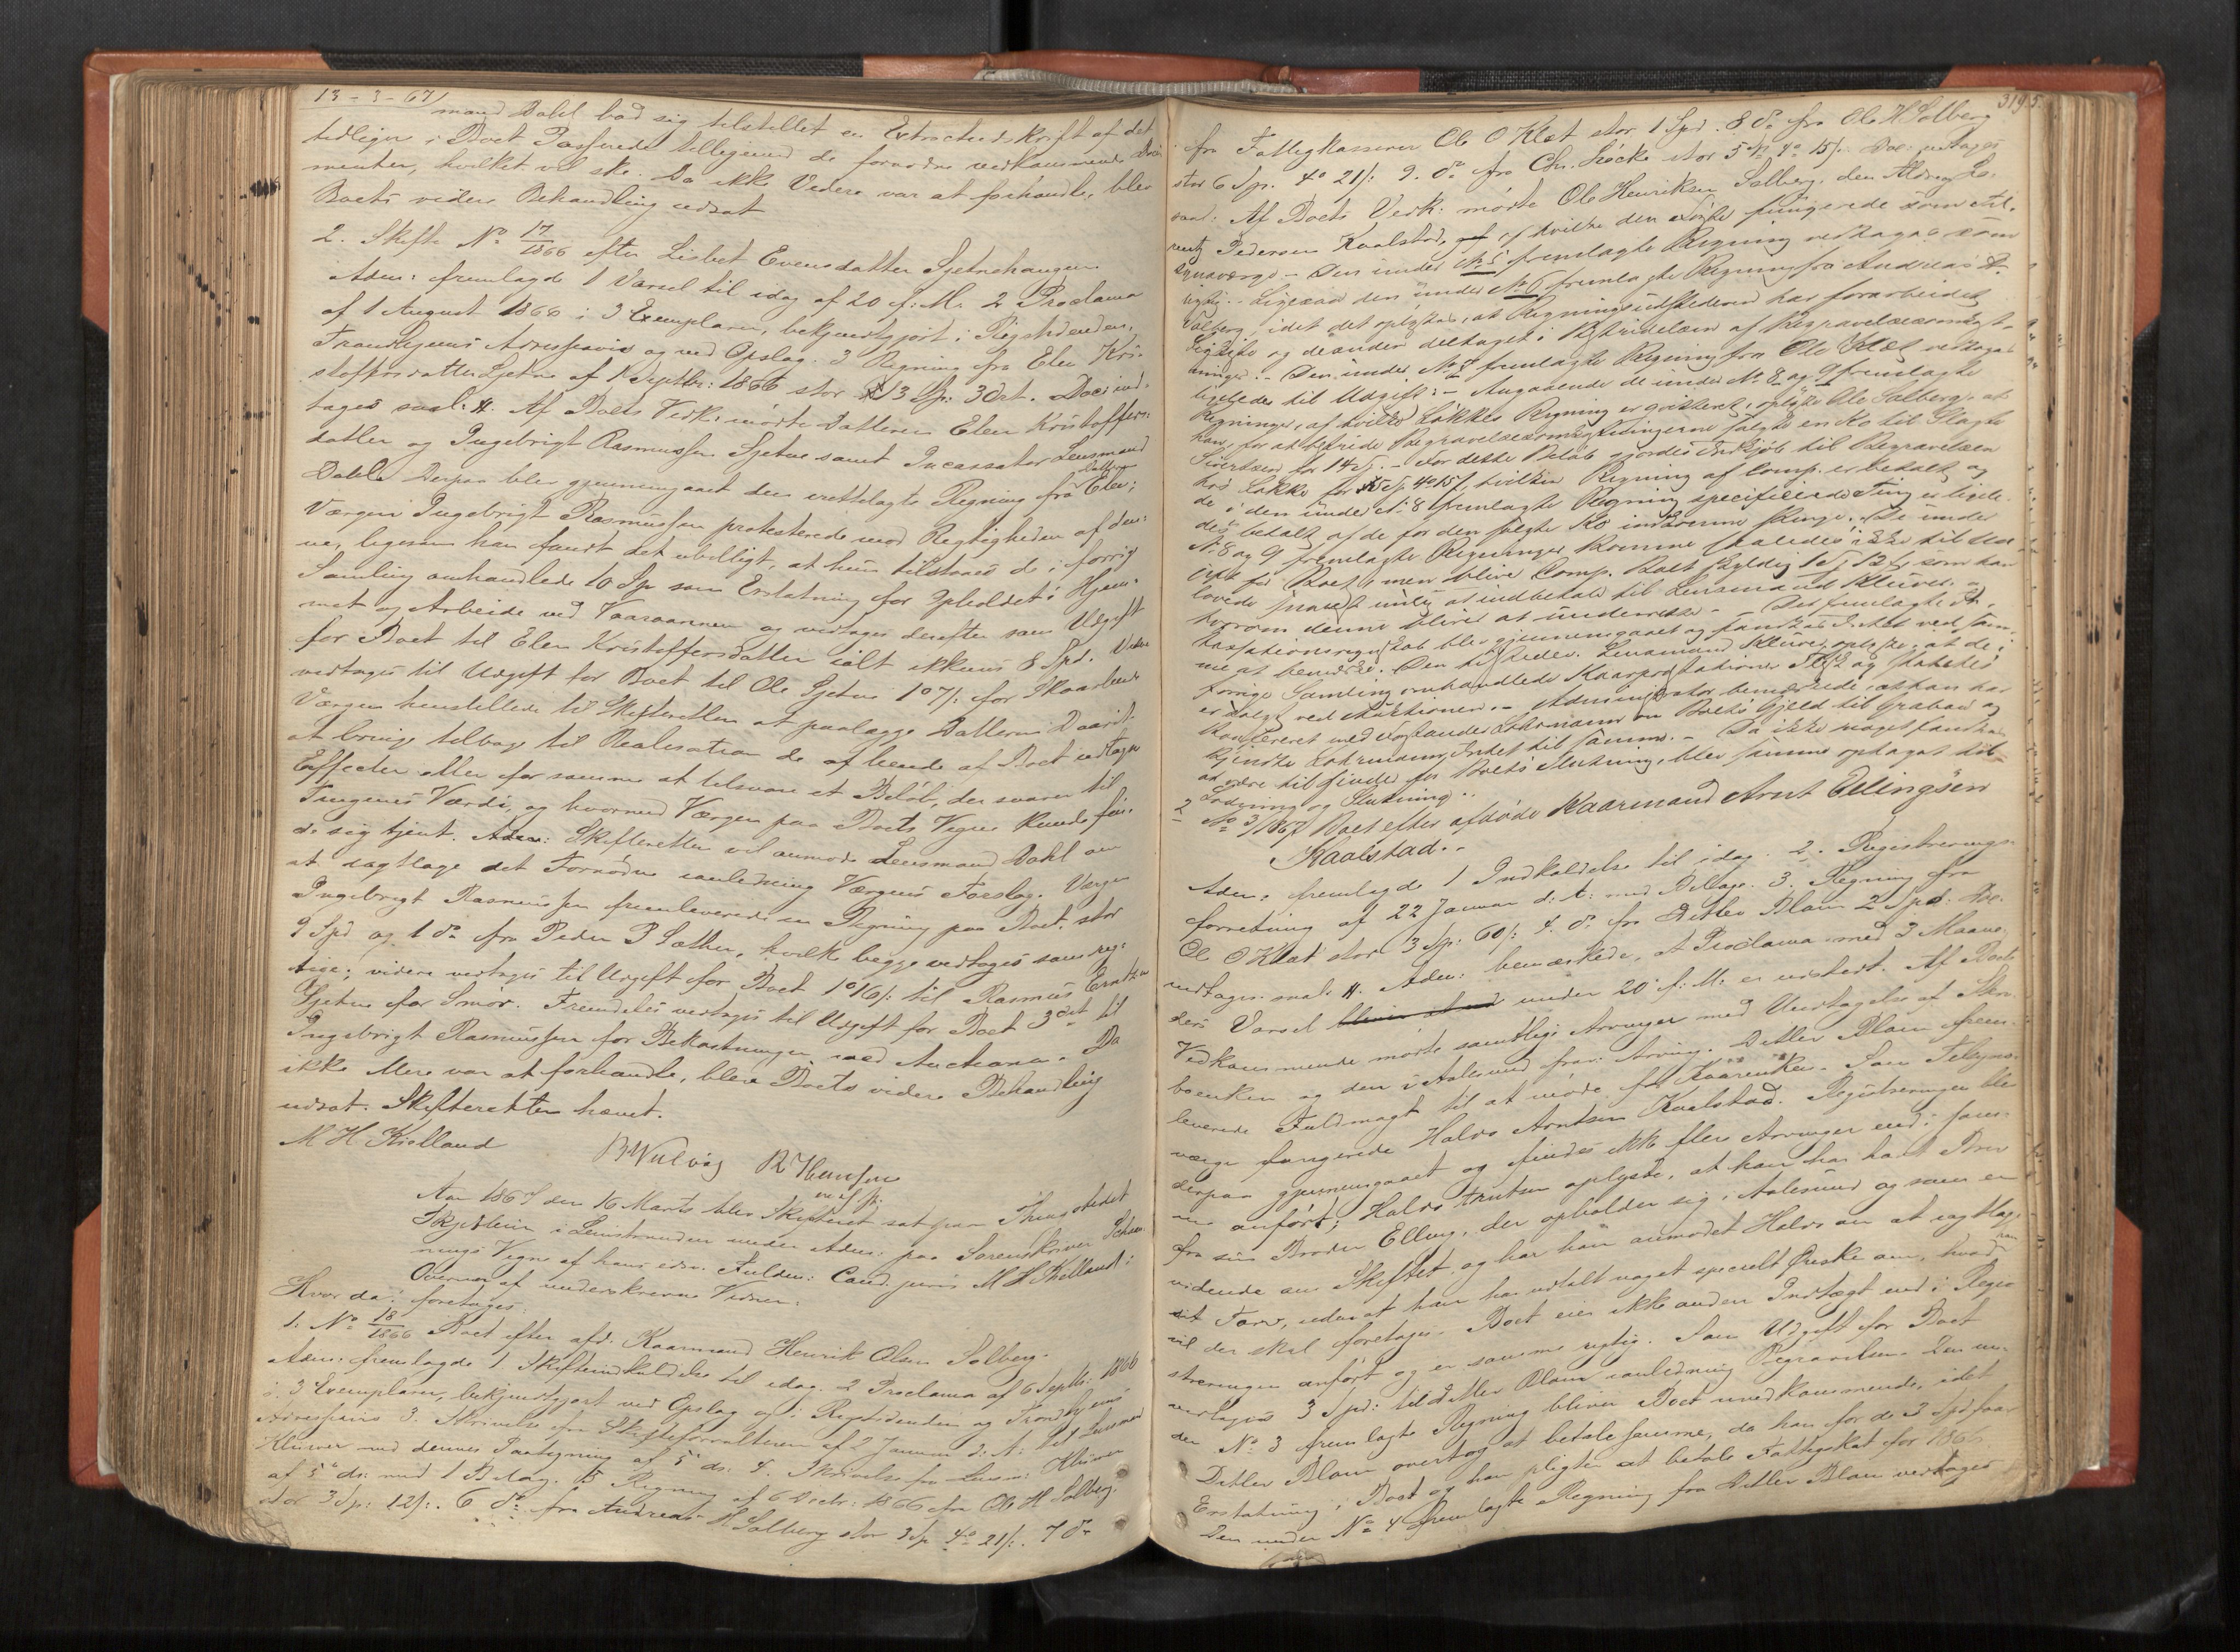 13-3-67
mand Dahl bad sig tilstillet en Extractudskrift af det
tidligere i Boet Passerede tilligemed de fornødne vedkommende Docu-
menter, hvilket vil ske. Da ikke Videre var at forhandle, blev
Boets videre Behandling udsat
2. Skifte No 17/1866 efter Lisbet Evensdatter Sjetnehaugen.
Adm: fremlagde 1 Varsel til idag af 20 f: M: 2 Proclama
af 1 August 1866 i 3 Exemplarer, bekjendtgjort i Rigstidenden,
Trondhjems Adresseavis og ved Opslag. 3 Regning fra Elen Kri-
stoffersdatter Sjetne af 1 Septbr: 1866 stor 13 Sp: 3 Ort. Doc: ind-
tages saal: #. Af Boets Vedk: mødte Datteren Elen Kristoffers-
datter og Ingebrigt Rasmussen Sjetne samt Incassator Lensmand
Dahl. Derpaa blev gjennemgaaet den irettelagte Regning fra Datteren Elen;
Værgen Ingebrigt Rasmussen protesterede mod Rigtigheden af den-
ne, ligesom han fandt det ubilligt, at hun tilstodes de i forrig
Samling omhandlede 10 Sp som Erstatning for Opholdet i Hjem-
met og Arbeide ved Vaaraannen og vedtages derefter som Udgift
for Boet til Elen Kristoffersdatter ialt ikkuns 8 Spd. Videre
vedtages til Udgift for Boet til Ole Sjetne 1 o 7 s: for Skoarbeide
Værgen henstillede til Skifteretten at paalægge Datteren Daarit
at bringe tilbage til Realisation de af hende af Boet udtagne
Effecter eller for samme at tilsvare et Beløb, der svarer til
Tingenes Værdi, og hvormed Værgen paa Boets Vegne kunde fin-
de sig tjent. Adm: Skifteretten vil anmode Lensmand Dahl om
at iagttage det Fornødne ianledning Værgens Forslag. Værgen
Ingebrigt Rasmussen fremleverede en Regning paa Boet, stor
9 Spd og 1 do fra Peder P Sæther, hvilke begge vedtages som rig-
tige; videre vedtages til Udgift for Boet 1 o 16 s: til Rasmus
Sjetne for Smør. Fremdeles vedtages til Udgift for Boet 3 Ort til
Ingebrigt Rasmussen for Bekostninger ved Auctionen. Da
ikke Mere var at forhandle, blev Boets videre Behandling
udsat. Skifteretten hævet.
M H Kielland
B Wulvig R Hansen
m. f. p.
Aar 1867 den 16 Marts blev Skifteret sat paa Thingstedet
Skjefstein i Leinstranden under Adm: paa Sorenskriver
nings Vegne af hans edsv. Fuldm: Cand. juris M H Kielland i
Overvær af underskrevne Vidner.
Hvor da foretages:
1. No 18/1866 Boet efter afd: Kaarmand Henrik Olsen Solberg.
Adm: fremlagde 1 Skifteindkaldelse til idag. 2 Proclama af 6 Septbr: 1866
i 3 Exemplarer, bekjendtgjort ved Opslag og i Rigstidenden og Trondhjems
Adresseavis 3. Skrivelse fra Skifteforvalteren af 2 Januar d: A: til Lensmand
Klüwer med dennes Paategning af 5 ds: 4. Skrivelse fra Lensm: Klüwer
af 5 ds: med 1 Bilag. 5 Regning af 6 Decbr: 1866 fra Ole H Solberg
stor 3 Sp: 12 s: 6 do fra Andreas H Solberg stor 3 Sp 4 o 21 s: 7 do
319 5.
fra Fattigkasserer Ole O Klæt stor 1 Spd. 8 do fra Ole H Solberg
stor 6 Sp. 4 o 21 s: 9. do fra Chr. Løcke stor 5 Sp 4 o 15 s: Doc: indtages
saal: Af Boets Vedk: mødte Ole Henriksen Solberg, den Ældre, Lo-
rentz Pedersen Kvalstad, af hvilke den sidste fungerede som Til-
synsværge. - Den under No 5 fremlagte Regning vedtages som
rigtig. - Ligesaa den under No 6 fremlagte Regning fra Andreas H.
Solberg, idet det oplystes, at Regningsudstederen har forarbeidet
Ligkiste og desuden deltaget i Bestridelsen af Begravelsesomkost-
ninger. - Den under No 7 fremlagte Regning fra Ole Klæt vedtages
ligeledes til Udgift: - Angaaende de under No 8 og 9 fremlagte
Regninger, af hvilke Løkkes Regning er qvitteret, oplyste Ole Solberg, at
han, for at bestride Begravelsesomkostningerne solgte en Ko til Slagter
Sivertsen for 14 Sp. - For dette Beløb gjordes Indkjøb til Begravelsen
hos Løkke for 5 Sp 4 o 15 s, hvilken Regning af Comp. er betalt, og
de i den under No 8 fremlagte Regning specificerede Ting er ligele-
des betalt af de for den solgte Ko indkomne Penge. De under
No 8 og 9 fremlagte Regninger komme saaledes ikke til Ud-
gift for Boet, men bliver Comp. Boet skyldig 1 Sp 12 s, som han
lovede snarest mulig at indbetale til Lensmand Klüwer, og
hvorom denne bliver at underrette. - Det fremlagte In-
kassationsregnskab blev gjennemgaaet og fandtes Intet ved sam-
me at bemærke. Den tilstedev. Lensmand Klüwer oplyste, at de i
forrige Samling omhandlede Kaarprestationer
er solgt ved Auktionen. - Administrator bemærkede, at han har
konfereret med Lokmann om Boets Gjeld til Graban og
kjendte Lokmann Intet til samme. - Da ikke noget fandtes
at være til Hinder for Boets Slutning, blev samme optaget til
Lodning og Slutning.
2 No 3/1867 Boet efter afdøde Kaarmand Arnt Ellingsen
Kaalstad.
Adm: fremlagde 1 Indkaldelse til idag 2. Registrerings-
forretning af 22 Januar d: A: med Bilage. 3. Regning fra
Ole O Klæt stor 3 Sp: 60 s: 4. do fra Ditlev Blom 2 Spd: Doc:
indtages saal: #. Adm: bemærkede, at Proclama med 3 Maane-
ders Varsel under 20 f: M: er udstedt. Af Boets
Vedkommende mødte samtlige Arvinger med Undtagelse af Stev-
boenken og den i Aalesund frav: Arving. Ditlev Blom frem-
leverede Fuldmagt til at møde for Kaarenken. Som Tilsyns-
værge fungerede Halvo Arntsen Kaalstad. Registreringen blev
derpaa gjennemgaaet og findes ikke flere Arvinger end i sam-
me anført; Halvo Arntsen oplyste, at han har havt Brev
fra sin Broder Elling, der opholder sig i Aalesund og som er
vidende om Skiftet, og har han anmodet Halvo om at iagttage
sit Tarv, uden at han har udtalt noget specielt Ønske om, hvad han
vil der skal foretages. Boet eier ikke anden Indtægt end i Regi-
streringen anført og er samme rigtig. Som Udgift for Boet
vedtages 3 Spd: til Ditlev Blom ianledning Begravelsen. Den un-
der No 3 fremlagte Regning bliver Boet uvedkommende, idet
Ditlev Blom overtog at betale samme, da han for de 3 Spd faar
Erstatning i Boet og han pligter at betale Fattigskat for 1866
Den under No 4 fremlagte Regning fra Ditlev Blom vedtages